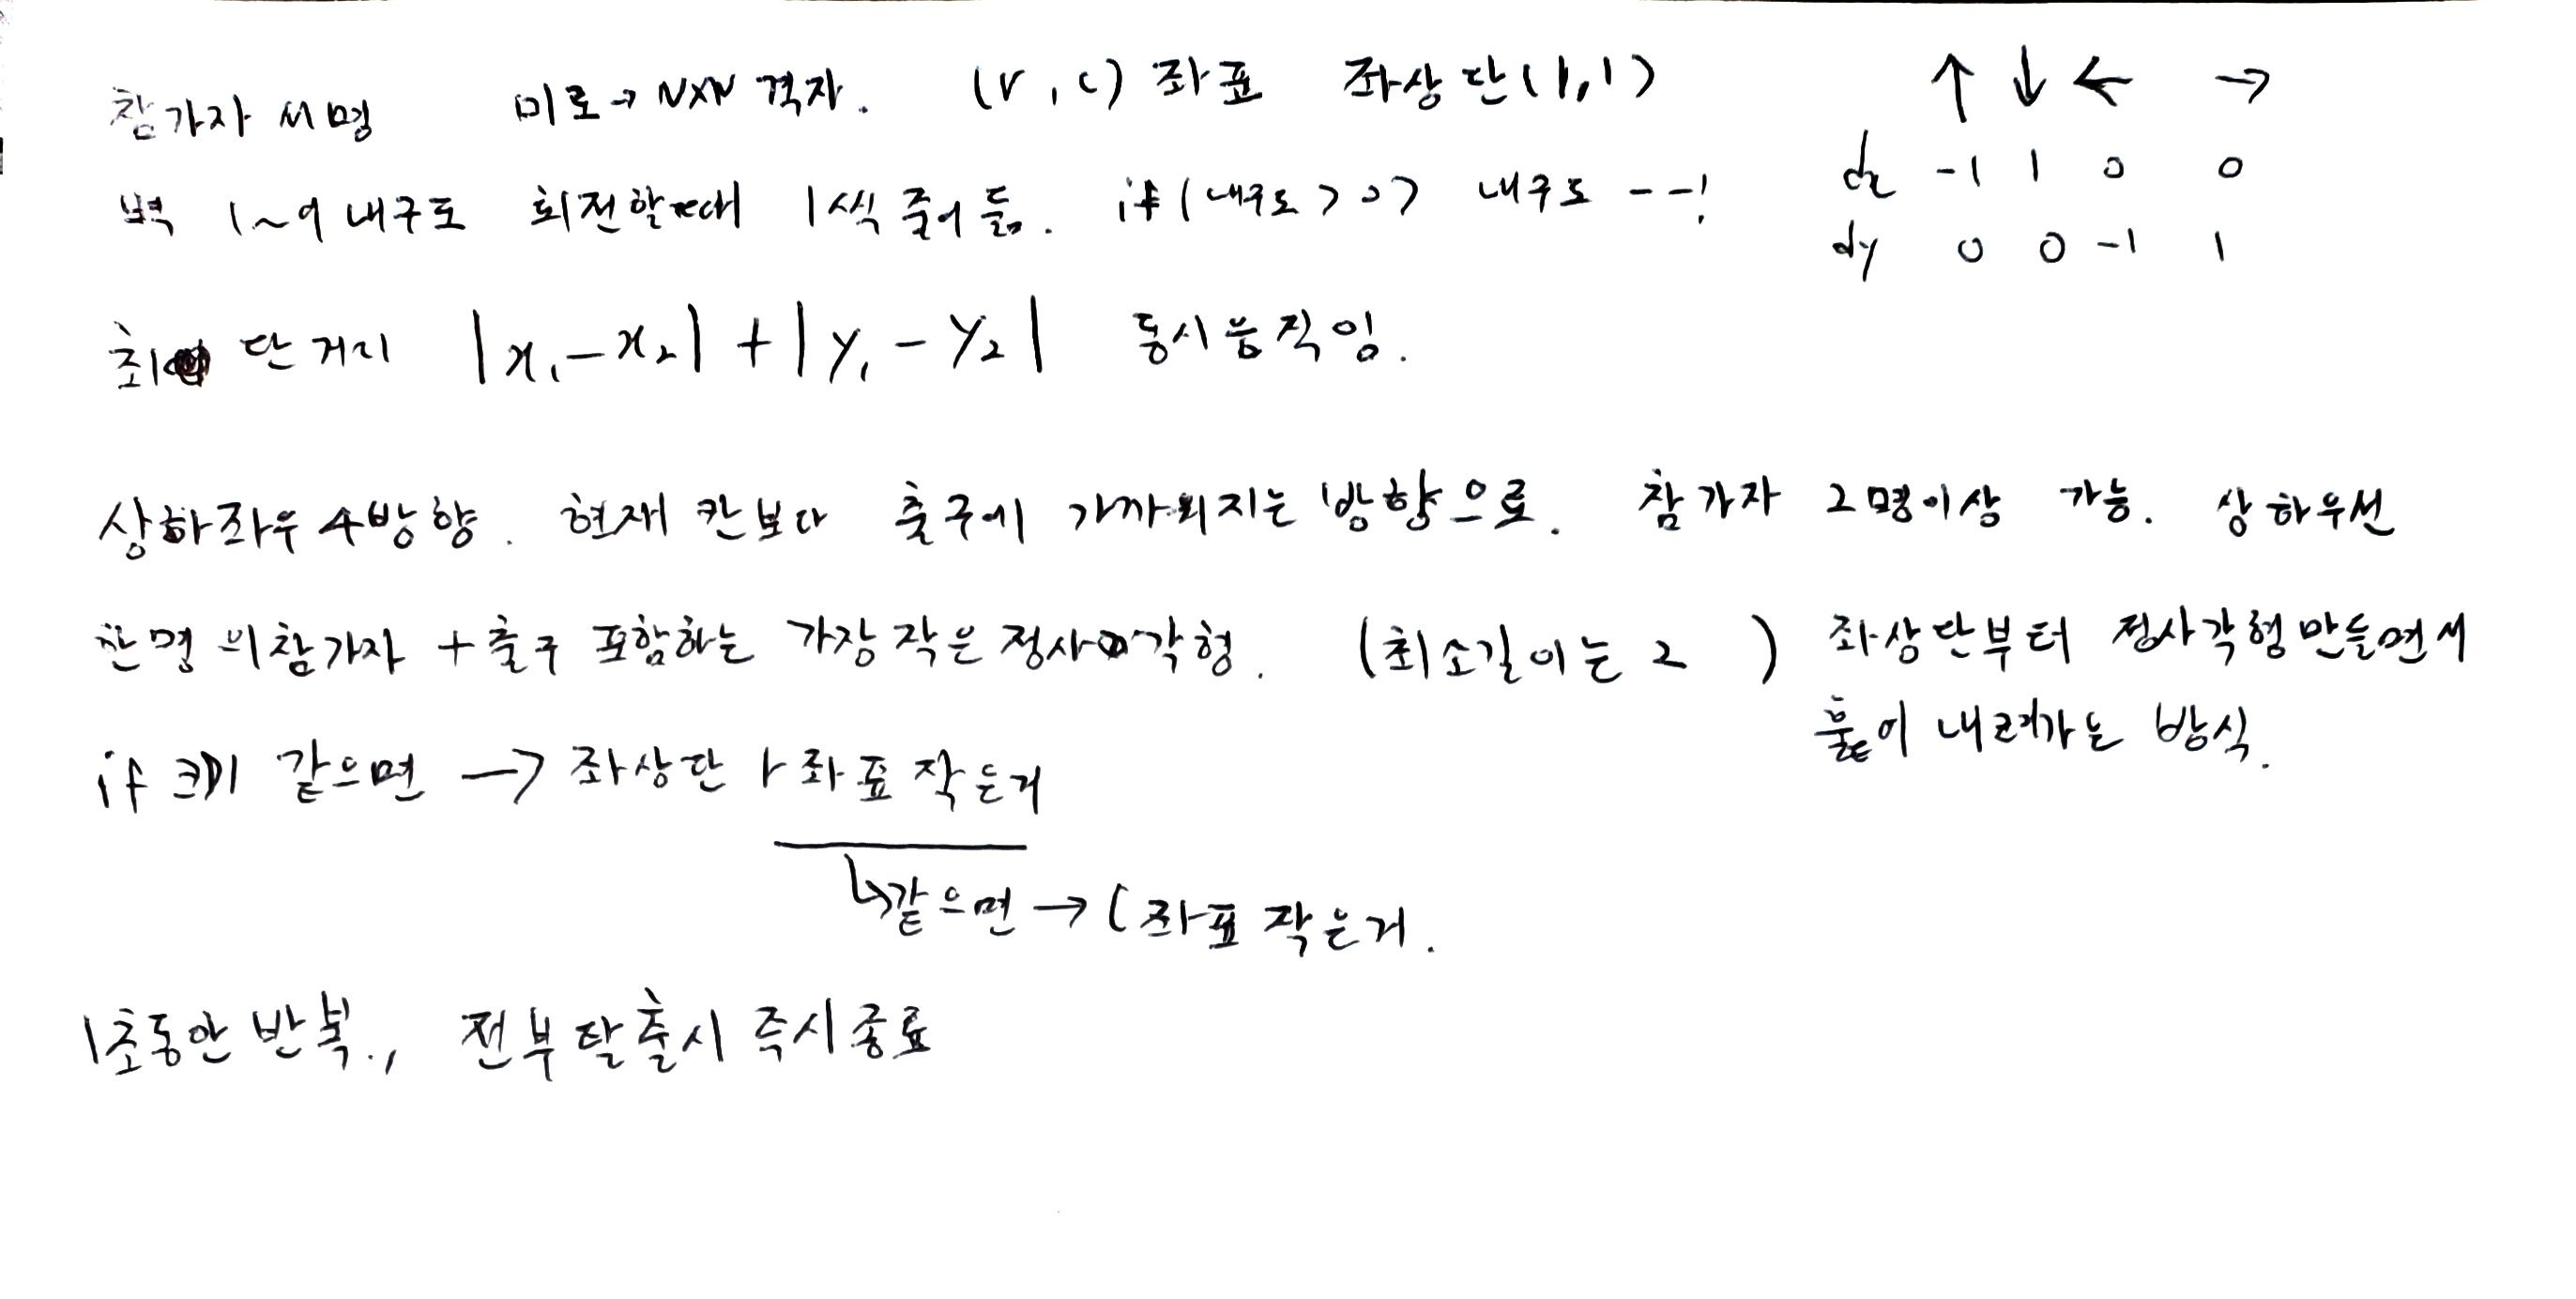 참가자 M명 미로→NXN 격자. (r, c) 좌표 좌상단(1,1) ↑ ↓ ← →
dx -1 1 0 0
벽 1~9 내구도 회전할때 1씩 줄어듦. if(내구도>0) 내구도 --!
dy 0 0 -1 1
최 단거리 |x₁-x₂|+|y₁-y₂| 동시움직임.
상하좌우 4방향. 현재 칸보다 출구에 가까워지는 방향으로. 참가자 2명이상 가능. 상하우선
한명의참가자 +출구 포함하는 가장 작은 정사각형. (최소길이는 2 ) 좌상단부터 정사각형만들면서
훑어 내려가는 방식.
if 크기 같으면 → 좌상단 r좌표 작은거
↳같으면 → c좌표 작은거.
1초동안 반복., 전부탈출시 즉시종료